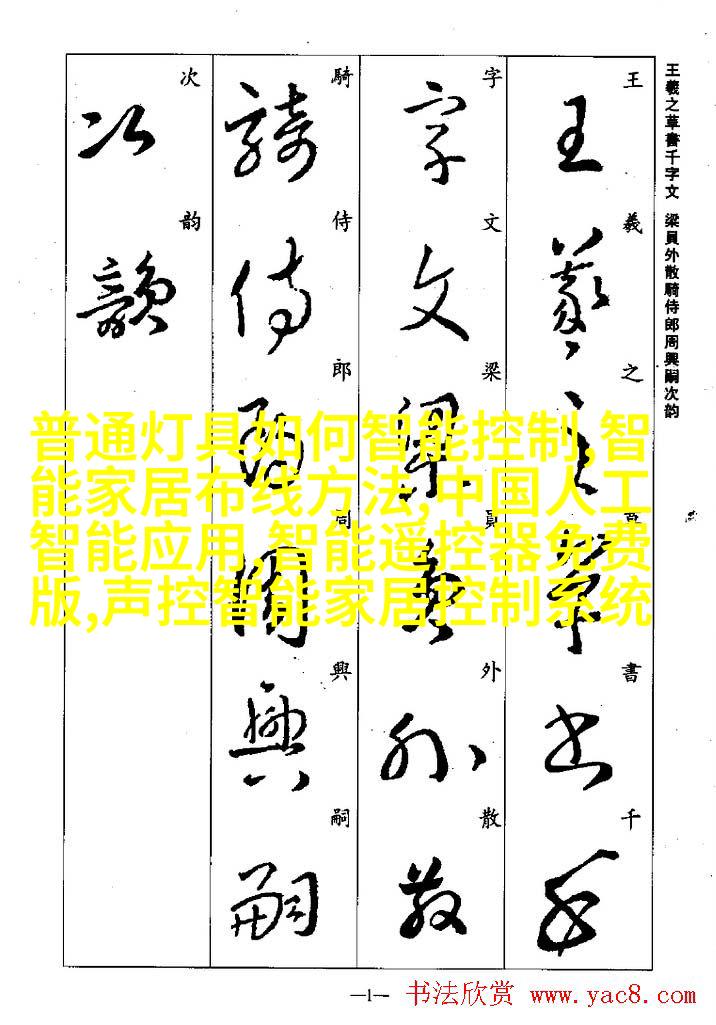 王羲之草書千字文 梁員外散騎侍郎周興嗣次韵
王羲之草書千
王羲之草書千
字文梁員外散
字文梁員外散
騎侍郎周興嗣
騎侍郎周興嗣
次韵
次韻
普通灯具如何智能控制,智
能家居布线方法,中国人工
智能应用,智能遥控器免费
版,声控智能家居控制系统
—1—
书法欣赏 www.yac8.com